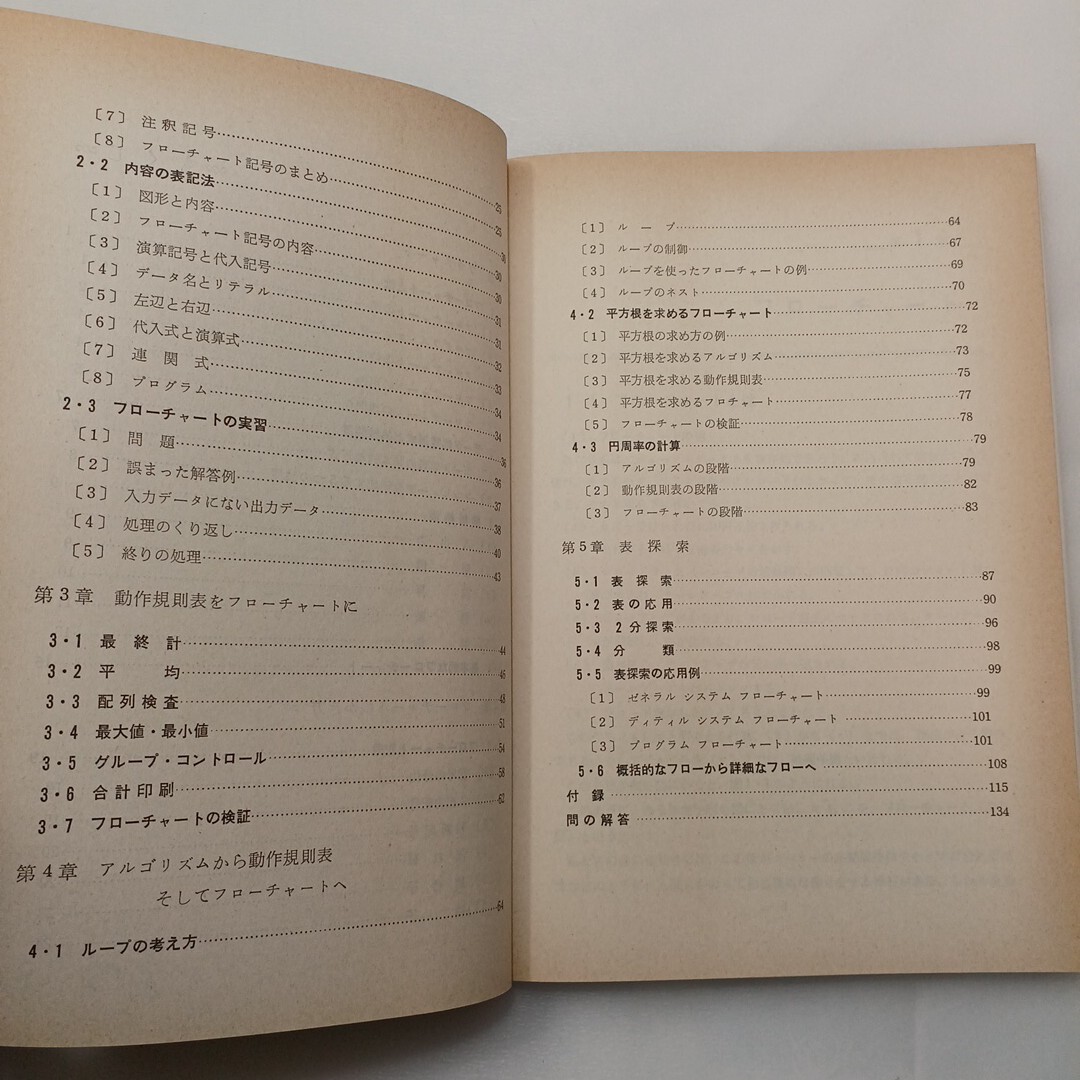 〔7〕 注釈記号……25
〔8〕 フローチャート記号のまとめ……25
2・2 内容の表記法……30
〔1〕 図形と内容……30
〔2〕 フローチャート記号の内容……30
〔3〕 演算記号と代入記号……31
〔4〕 データ名とリテラル……31
〔5〕 左辺と右辺……32
〔6〕 代入式と演算式……33
〔7〕 連関式……34
〔8〕 プログラム……34
2・3 フローチャートの実習……36
〔1〕 問題……36
〔2〕 誤まった解答例……37
〔3〕 入力データにない出力データ……38
〔4〕 処理のくり返し……40
〔5〕 終りの処理……43
第3章 動作規則表をフローチャートに
3・1 最終計……44
3・2 平均……46
3・3 配列検査……48
3・4 最大値・最小値……51
3・5 グループ・コントロール……54
3・6 合計印刷……58
3・7 フローチャートの検証……62
第4章 アルゴリズムから動作規則表
そしてフローチャートへ
4・1 ループの考え方……64
〔1〕 ループ……64
〔2〕 ループの制御……67
〔3〕 ループを使ったフローチャートの例……69
〔4〕 ループのネスト……70
4・2 平方根を求めるフローチャート……72
〔1〕 平方根の求め方の例……72
〔2〕 平方根を求めるアルゴリズム……73
〔3〕 平方根を求める動作規則表……75
〔4〕 平方根を求めるフロチャート……77
〔5〕 フローチャートの検証……78
4・3 円周率の計算……79
〔1〕 アルゴリズムの段階……79
〔2〕 動作規則表の段階……82
〔3〕 フローチャートの段階……83
第5章 表探索
5・1 表探索……87
5・2 表の応用……90
5・3 2分探索……96
5・4 分類……98
5・5 表探索の応用例……99
〔1〕 ゼネラル システム フローチャート……99
〔2〕 ディティル システム フローチャート……101
〔3〕 プログラム フローチャート……101
5・6 概括的なフローから詳細なフローへ……108
付録……115
問の解答……134